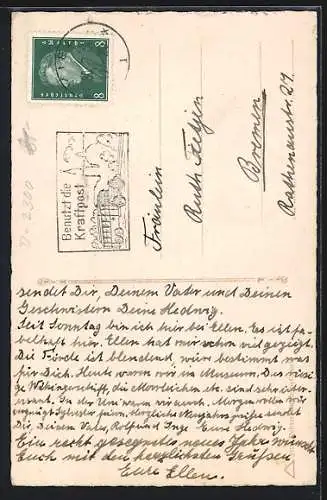 8 8
Deutsches Reich
Benutzt die
Kraftpost
D-2300
Fräulein
Ruth
Bremen
Rathenaustr. 29.
sendet Dir, Deinem Vater und Deinen
Geschwistern Deine Hedwig.
Seit Sonntag bin ich hier bei Ellen. Es ist fa-
belhaft hier. Ellen hat mir schon viel gezeigt.
Die Förde ist blendend, wäre bestimmt was
für Dich. Heute waren wir im Museum. Das rie-
sige Wikingerschiff, die Moorleichen etc. sind sehr inter-
essant. In der Uni waren wir auch. Morgen wollen wir
vergnügt Sylvester feiern. Herzliche Neujahrsgrüße sendet
Dir, Deinem Vater, Rolf und Inge Eure Hedwig.
Ein recht gesegnetes neues Jahr wünscht
Euch mit den herzlichsten Grüßen
Eure Ellen.